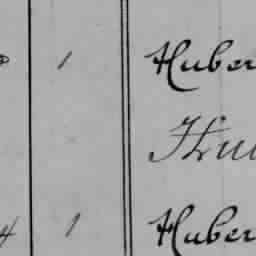 1 Huber
Hu
4 1 Huber